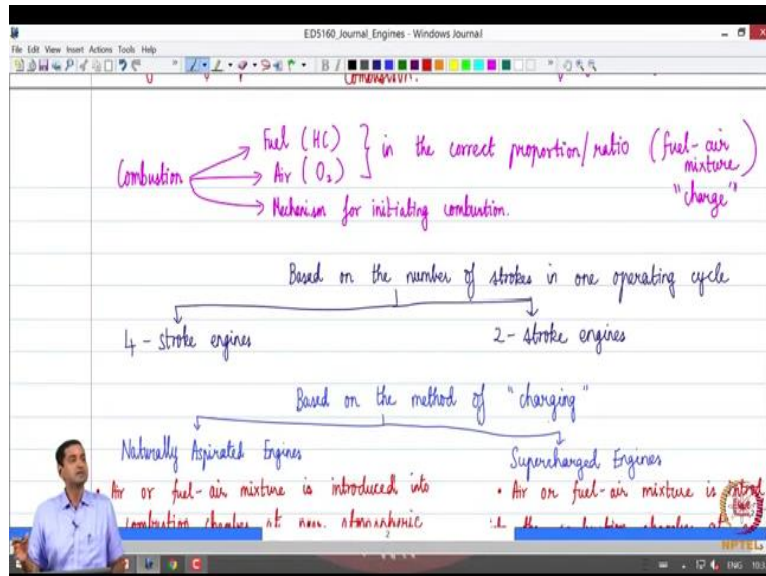 ED5160_Journal_Engines - Windows Journal
File Edit View Insert Actions Tools Help
B I
Combustion.
Combustion
Fuel (HC)
Air (O2)
in the correct proportion/ratio (fuel-air mixture)
"charge"
Mechanism for initiating combustion.
Based on the number of strokes in one operating cycle
4 - stroke engines
2 - stroke engines
Based on the method of "charging"
Naturally Aspirated Engines
Supercharged Engines
• Air or fuel-air mixture is introduced into
• Air or fuel-air mixture is
combustion chamber at near atmospheric
the combustion chamber at
2
NPTEL
ENG